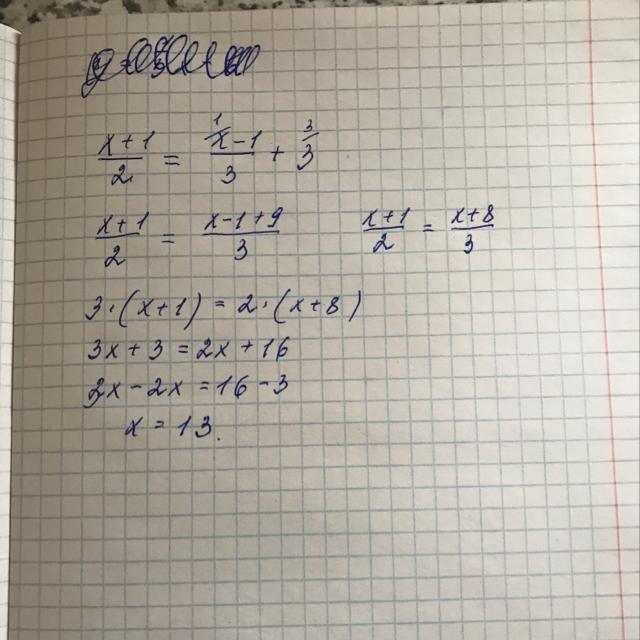 x+1/2 = ¹x-1/3 + ³/3
x+1/2 = x-1+9/3 x+1/2 = x+8/3
3·(x+1) = 2·(x+8)
3x+3 = 2x+16
3x-2x = 16-3
x = 13.